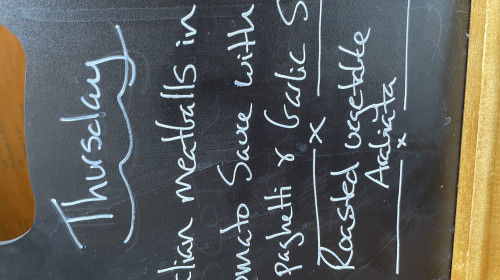 Thursday
lian meatballs in
mato Sauce with
paghetti & Garlic S
x
Roasted vegetable
Arabiata
x